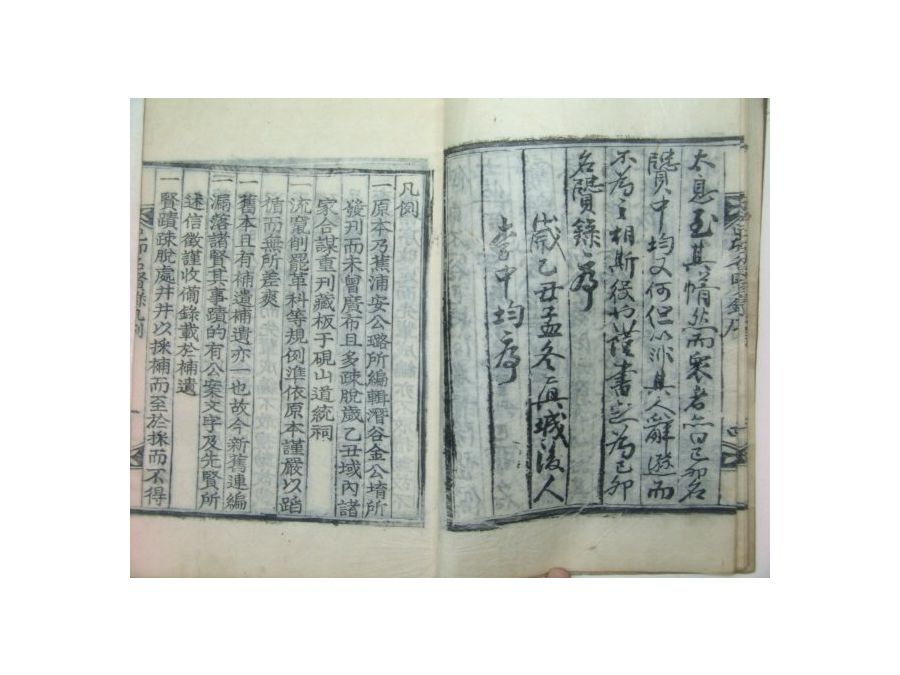 太息至其慨然而衆者亦曰己卯名
賢中均又何但以非其人辭遜而
不為之相斯役乃謹書之為己卯
名賢錄序
歲乙丑孟冬眞城後人
李中均序
凡例
一原本乃蕉浦安公璐所編輯潛谷金公堉所
發刊而未曾廣布且多疎脫歲乙丑域內諸
家合謀重刊藏板于硯山道統祠
一流竄削罷革科等規例準依原本謹嚴以蹈
循而無所差爽
一舊本且有補遺補遺亦一也故今新舊連編
一漏落諸賢其事蹟的有公案文字及先賢所
述信徵謹收備錄載於補遺
一賢蹟疎脫處井井以採補而至於採而不得
己卯名賢錄凡例